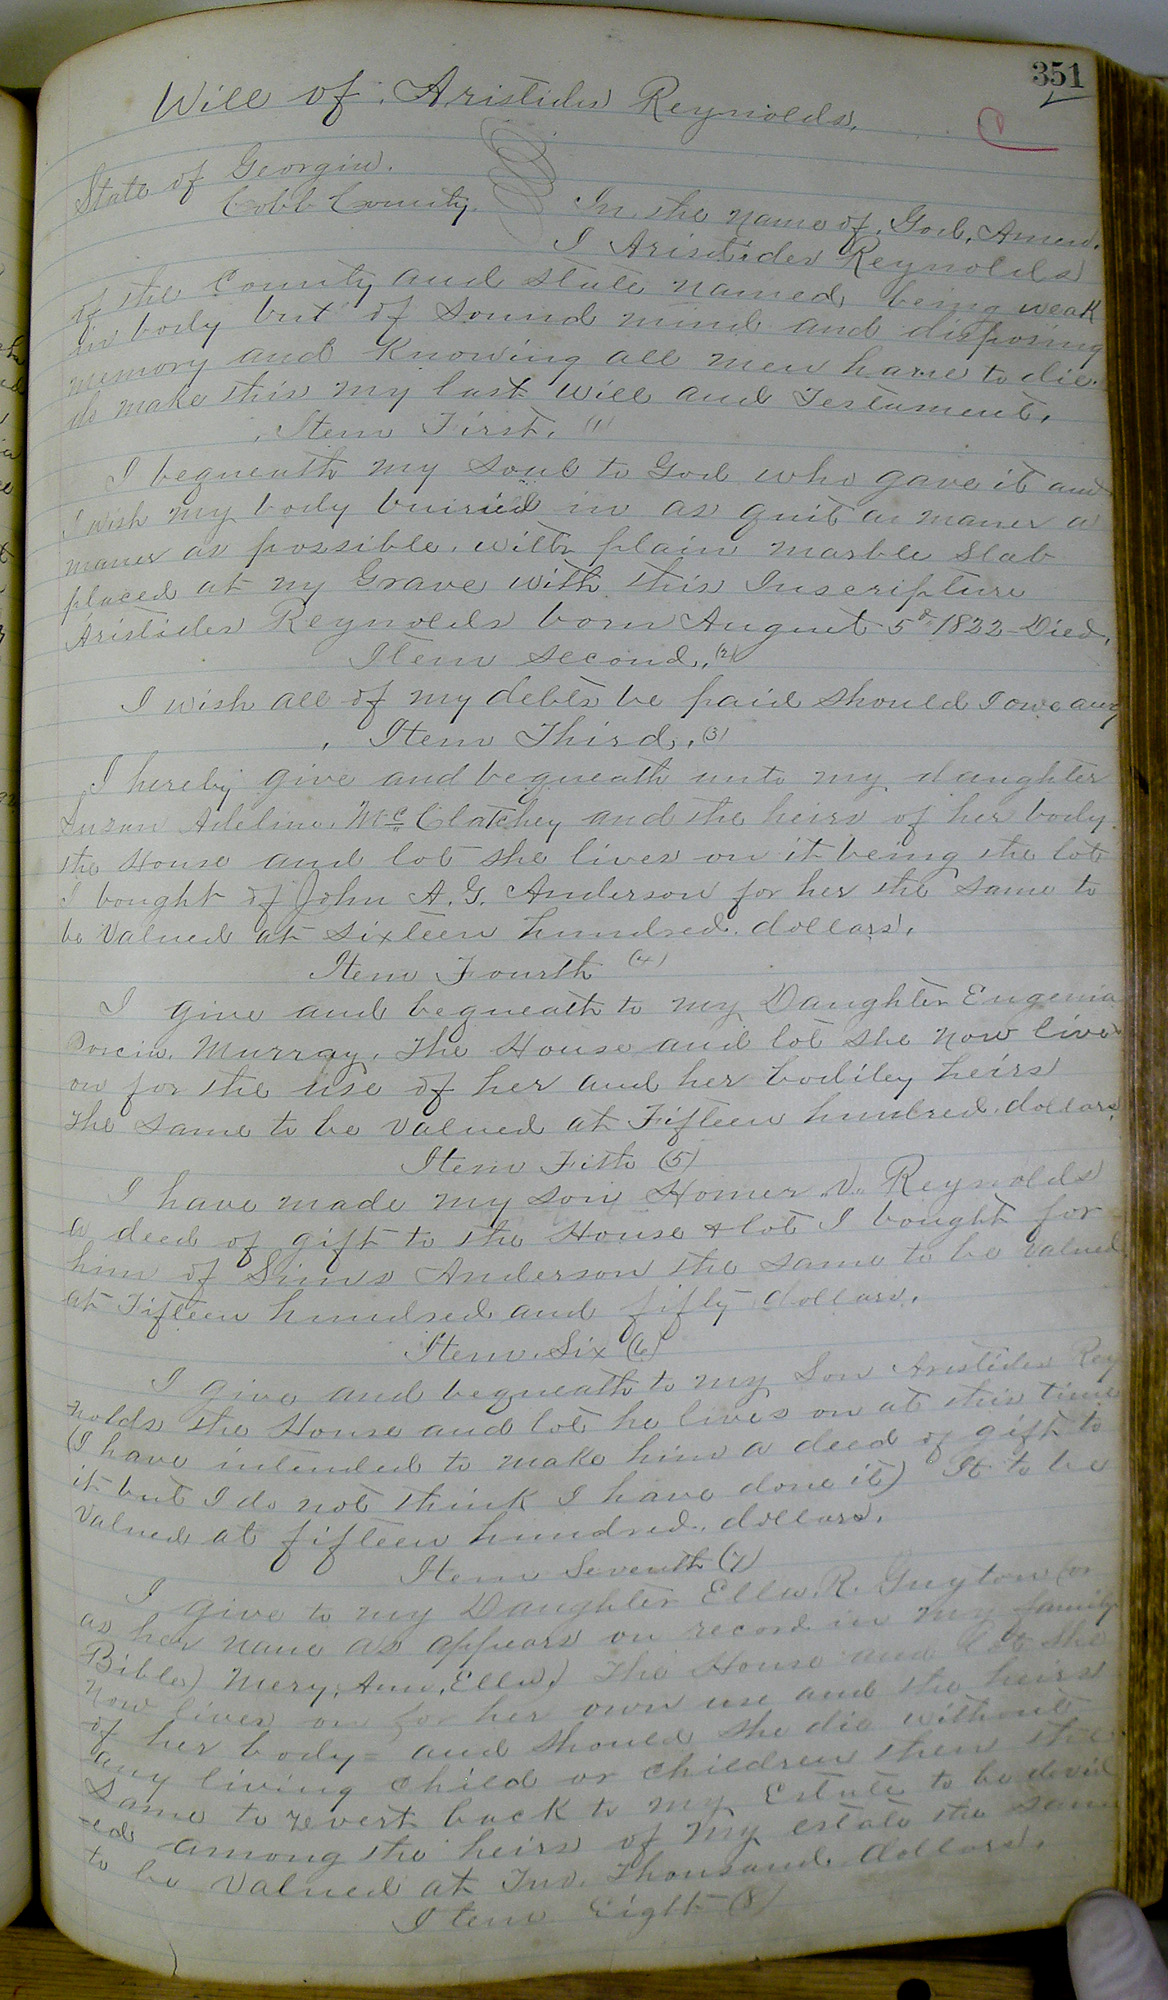 351
Will of Aristides Reynolds.
State of Georgia.
Cobb County. In the name of God, Amen.
I Aristides Reynolds
of the County and state named being weak
in body but of Sound mind and disposing
memory and Knowing all men have to die.
do make this my last Will and Testament.
Item First. (1)
I bequeath my soul to God who gave it and
I wish my body buried in as quit a maner a
maner as possible. with plain marble Slab
placed at my Grave with this Inscripture
Aristides Reynolds born August 5th 1822 Died.
Item Second. (2)
I wish all of my debts be paid should I owe any
Item Third. (3)
I hereby give and bequeath unto my daughter
Susan Adeline Mc Clatchey and the heirs of her body
the House and lot she lives on it being the lot
I bought of John A. G. Anderson for her the same to
be Valued at sixteen hundred dollars.
Item Fourth (4)
I give and bequeath to my Daughter Eugenia
Murray, the House and lot she now lives
on for the use of her and her bodiley heirs
the same to be Valued at Fifteen hundred dollars
Item Fith (5)
I have made my son Homer V. Reynolds
a deed of gift to the House & lot I bought for
him of Sims Anderson the same to be valued
at Fifteen hundred and fifty dollars.
Item Six (6)
I give and bequeath to my Son Aristides Rey
nolds the House and lot he lives on at this time
(I have intended to make him a deed of gift to
it but I do not think I have done it) It to be
Valued at fifteen hundred dollars.
Item Seventh (7)
I give to my Daughter Ella R. Guyton (or
as her name as appears on record in my family
Bible) Mery, Ann, Ella) The House and lot she
now lives on for her own use and the heirs
of her body = and should she die without
any living child or children then the
Same to revert back to my Estate to be devid
-ed among the heirs of my estate the same
to be Valued at Two Thousand dollars.
Item Eight (8)